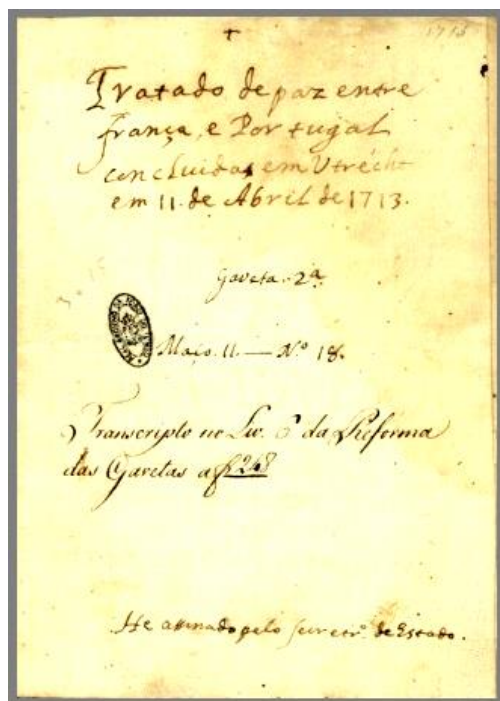 1713
Tratado de paz entre
França, e Portugal
concluidos em Utrécht
em 11. de Abril de 1713.
Gaveta. 2ª
Maço. 11. — N.º 18.
Transcripto no Liv. 6 da Reforma
das Gavetas a f 248
He assinado pelo secretrº. de Estado.